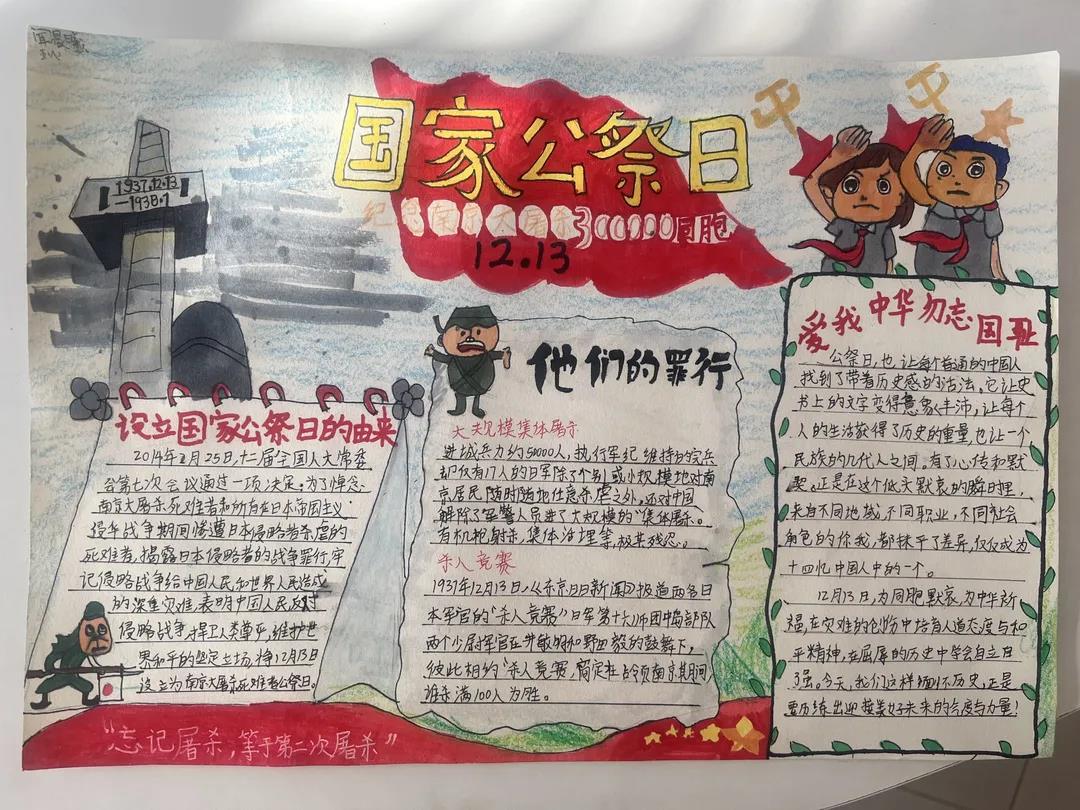 国家公祭日
纪念南京大屠杀300000同胞
12.13
1937.12.13
—1938.1
设立国家公祭日的由来
2014年2月25日,十二届全国人大常委
会第七次会议通过一项决定,为了悼念
南京大屠杀死难者和所有在日本帝国主义
侵华战争期间惨遭日本侵略者杀虐的
死难者,揭露日本侵略者的战争罪行,牢
记侵略战争给中国人民和世界人民造成
的深重灾难,表明中国人民反对
侵略战争,捍卫人类尊严,维护世
界和平的坚定立场,将12月13日
设立为南京大屠杀死难者公祭日。
他们的罪行
大规模集体屠杀
进城兵力约50000人,执行军纪维持的宪兵
却仅有17人的日军除了个别或小规模地对南
京居民随时随地任意杀虐之外,还对中国
解除了军警人员进了大规模的“集体屠杀。
有机枪射杀,集体活埋等,极其残忍。
杀人竞赛
1937年12月13日,《东京日日新闻》报道两名日
本军官的“杀人竞赛”日军第十六师团中岛部队
两个少尉军官
野田毅的鼓舞下,
彼此相约“杀人竞赛,商定在占领南京其期间
谁杀满100人为胜。
爱我中华勿忘国耻
公祭日,也让每个普通的中国人
找到了带着历史感的活法,它让史
书上的文字变得意象丰沛,让每个
人的生活获得了历史的重量,也让一个
民族的几代人之间,有了心传和默
契。正是在这个低头默哀的瞬时里,
来自不同地域,不同职业,不同社会
角色的你我,都抹平了差异,仅仅成为
十四忆中国人中的一个。
12月13日,为同胞默哀,为中华祈
福,在灾难的创伤中培育人道态度与和
平精神,在屈辱的历史中学会自立自
强。今天,我们这样缅怀历史,正是
要历练出迎接美好未来的态度与力量!
“忘记屠杀,等于第二次屠杀”